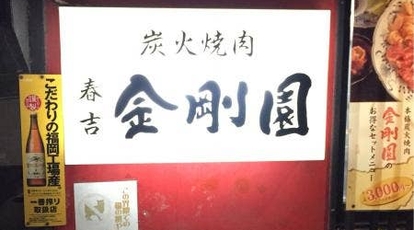 炭火焼肉
春吉
金剛園
こだわりの福岡工場産。
一番搾り
取扱店
本格炭火焼肉
金剛園の
お得なセットメニュー
3,000